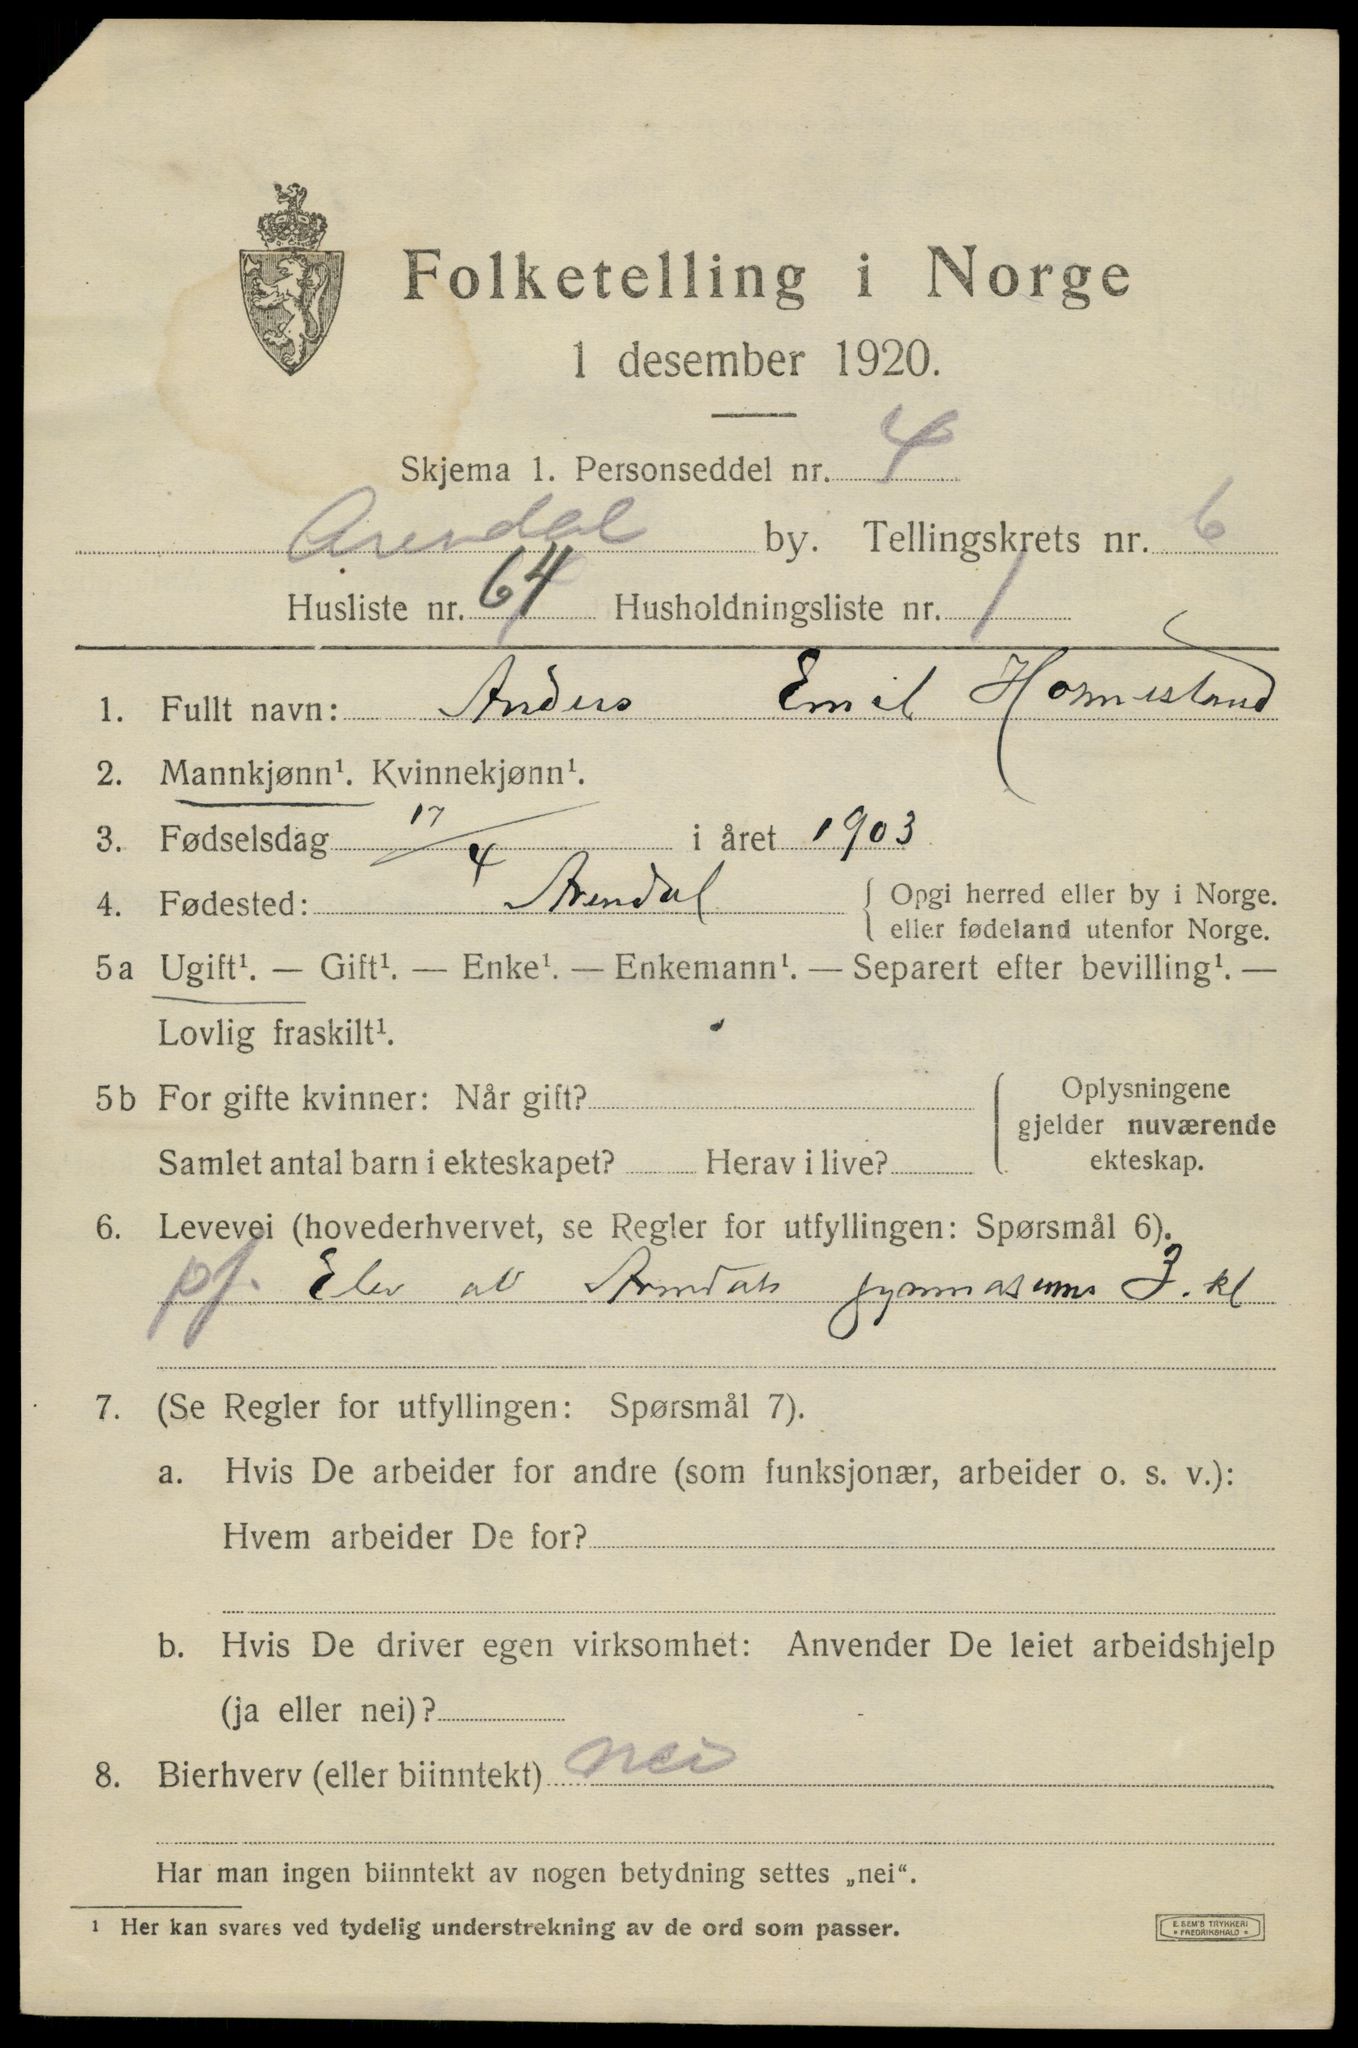 Folketelling i Norge
1 desember 1920.
Skjema 1. Personseddel nr. 4
Arendal by. Tellingskrets nr. 6
Husliste nr. 64 Husholdningsliste nr. 1
1. Fullt navn: Anders Emil Hornesland
2. Mannkjønn¹. Kvinnekjønn¹.
3. Fødselsdag 17/4 i året 1903
4. Fødested: Arendal { Opgi herred eller by i Norge.
eller fødeland utenfor Norge.
5a Ugift¹. — Gift¹. — Enke¹. — Enkemann¹. — Separert efter bevilling¹. —
Lovlig fraskilt¹.
5b For gifte kvinner: Når gift?
Samlet antal barn i ekteskapet? Herav i live?
Oplysningene
gjelder nuværende
ekteskap.
6. Levevei (hovederhvervet, se Regler for utfyllingen: Spørsmål 6).
pf. Elev av Arendals gymnasiums 3. kl
7. (Se Regler for utfyllingen: Spørsmål 7).
a. Hvis De arbeider for andre (som funksjonær, arbeider o. s. v.):
Hvem arbeider De for?
b. Hvis De driver egen virksomhet: Anvender De leiet arbeidshjelp
(ja eller nei)?
8. Bierhverv (eller biinntekt) nei
Har man ingen biinntekt av nogen betydning settes „nei".
1 Her kan svares ved tydelig understrekning av de ord som passer.
E. SEM'S TRYKKERI
* FREDRIKSHALD *